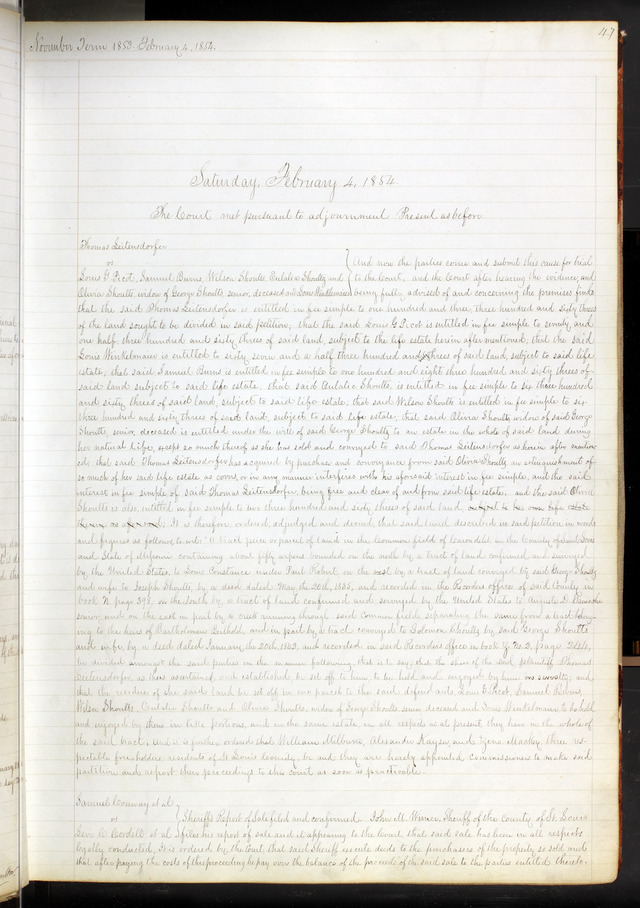 47
November Term 1853. February 4, 1854.
Saturday, February 4, 1854.
The Court met pursuant to adjournment Present as before
Thomas Leitensdorfer
vs
And now the parties come and submit this cause for trial
Louis G Picot, Samuel Burns, Wilson Shoults, Eulalie Shoults and
to the Court, and the Court after hearing the evidence, and
Olivia Shoults, widow of George Shoults, senior, deceased and Louis Winkelmaier
being fully advised of and concerning the premises finds
that the said Thomas Leitensdorfer is entitled in fee simple to one hundred and three, three hundred and sixty threes
of the land sought to be divided in said petition; that the said Louis G Picot is entitled in fee simple to seventy and
one half, three hundred and sixty threes of said land, subject to the life estate herein after mentioned, that the said
Louis Winkelmaier is entitled to sixty seven and a half three hundred and threes of said land, subject to said life
estate, that said Samuel Burns is entitled in fee simple to one hundred and eight three hundred and sixty threes of
said land subject to said life estate, that said Eulalie Shoults, is entitled in fee simple to six three hundred
and sixty threes of said land, subject to said life estate, that said Wilson Shoults is entitled in fee simple to six
three hundred and sixty threes of said land, subject to said life estate, that said Olivia Shoults widow of said George
Shoults, senior, deceased is entitled under the will of said George Shoults to an estate in the whole of said land during
her natural life, except so much thereof as she has sold and conveyed to said Thomas Leitensdorfer as herein after mention
ed, that said Thomas Leitensdorfer has acquired by purchase and conveyance from said Olivia Shoults an extinguishment of
so much of her said life estate as covers, or in any manner interferes with his aforesaid interest in fee simple, and the said
interest in fee simple of said Thomas Leitensdorfer, being free and clear of and from said life estate, and the said Olivia
Shoults is also entitled in fee simple to two three hundred and sixty threes of said land, subject to her own life estate
therein as aforesaid; It is therefore ordered, adjudged and decreed, that said land described in said petition in words
and figures as follows to wit: "A tract piece or parcel of land in the Common field of Carondelet in the County of Saint Louis
and State of Missouri containing about fifty arpens bounded on the north by a tract of land confirmed and surveyed
by the United States, to Louis Constance under Paul Robert, on the west by a tract of land conveyed by said George Shoults
and wife to Joseph Shoults, by a deed dated May the 20th, 1835, and recorded in the Recorders office of said County in
book N page 398, on the South by a tract of land confirmed and surveyed by the United States to Auguste D
senior, and on the east in part by a creek running through said Common fields separating the same from a tract belong-
ing to the heirs of Bartholomew Berthold, and in part by a tract conveyed to Solomon Shoults by said George Shoults
and wife, by a deed dated January the 20th, 1843, and recorded in said Recorders Office in book No. 2, page 244,
be divided amongst the said parties in the manner following, that is to say, that the share of the said plaintiff Thomas
Leitensdorfer as here ascertained and established be set off to him to be held and enjoyed by him in severalty, and
that the residue of the said land be set off in one parcel to the said defendants Louis G Picot, Samuel Burns,
Wilson Shoults, Eulalie Shoults and Olivia Shoults, widow of George Shoults senior deceased and Louis Winkelmaier to be held
and enjoyed by them in like portions, and in the same estate, in all respects as at present they have in the whole of
the said tract; And it is further ordered that William Milburn, Alexander Kayser, and Zeno Mackey, three res-
pectable freeholders residents of St Louis County, be and they are hereby appointed Commissioners to make said
partition and report their proceedings to this court as soon as practicable.
Samuel Conway et al
vs
Sheriff's Report of Sale filed and confirmed. John M. Wimer, Sheriff of the County of St. Louis
Levi C Cordell et al
files his report of sale and it appearing to the Court that said sale has been in all respects
legally conducted, It is ordered by the Court that said Sheriff execute deeds to the purchasers of the property so sold and
that after paying the costs of the proceeding he pay over the balance of the proceeds of the said sale to the parties entitled thereto.